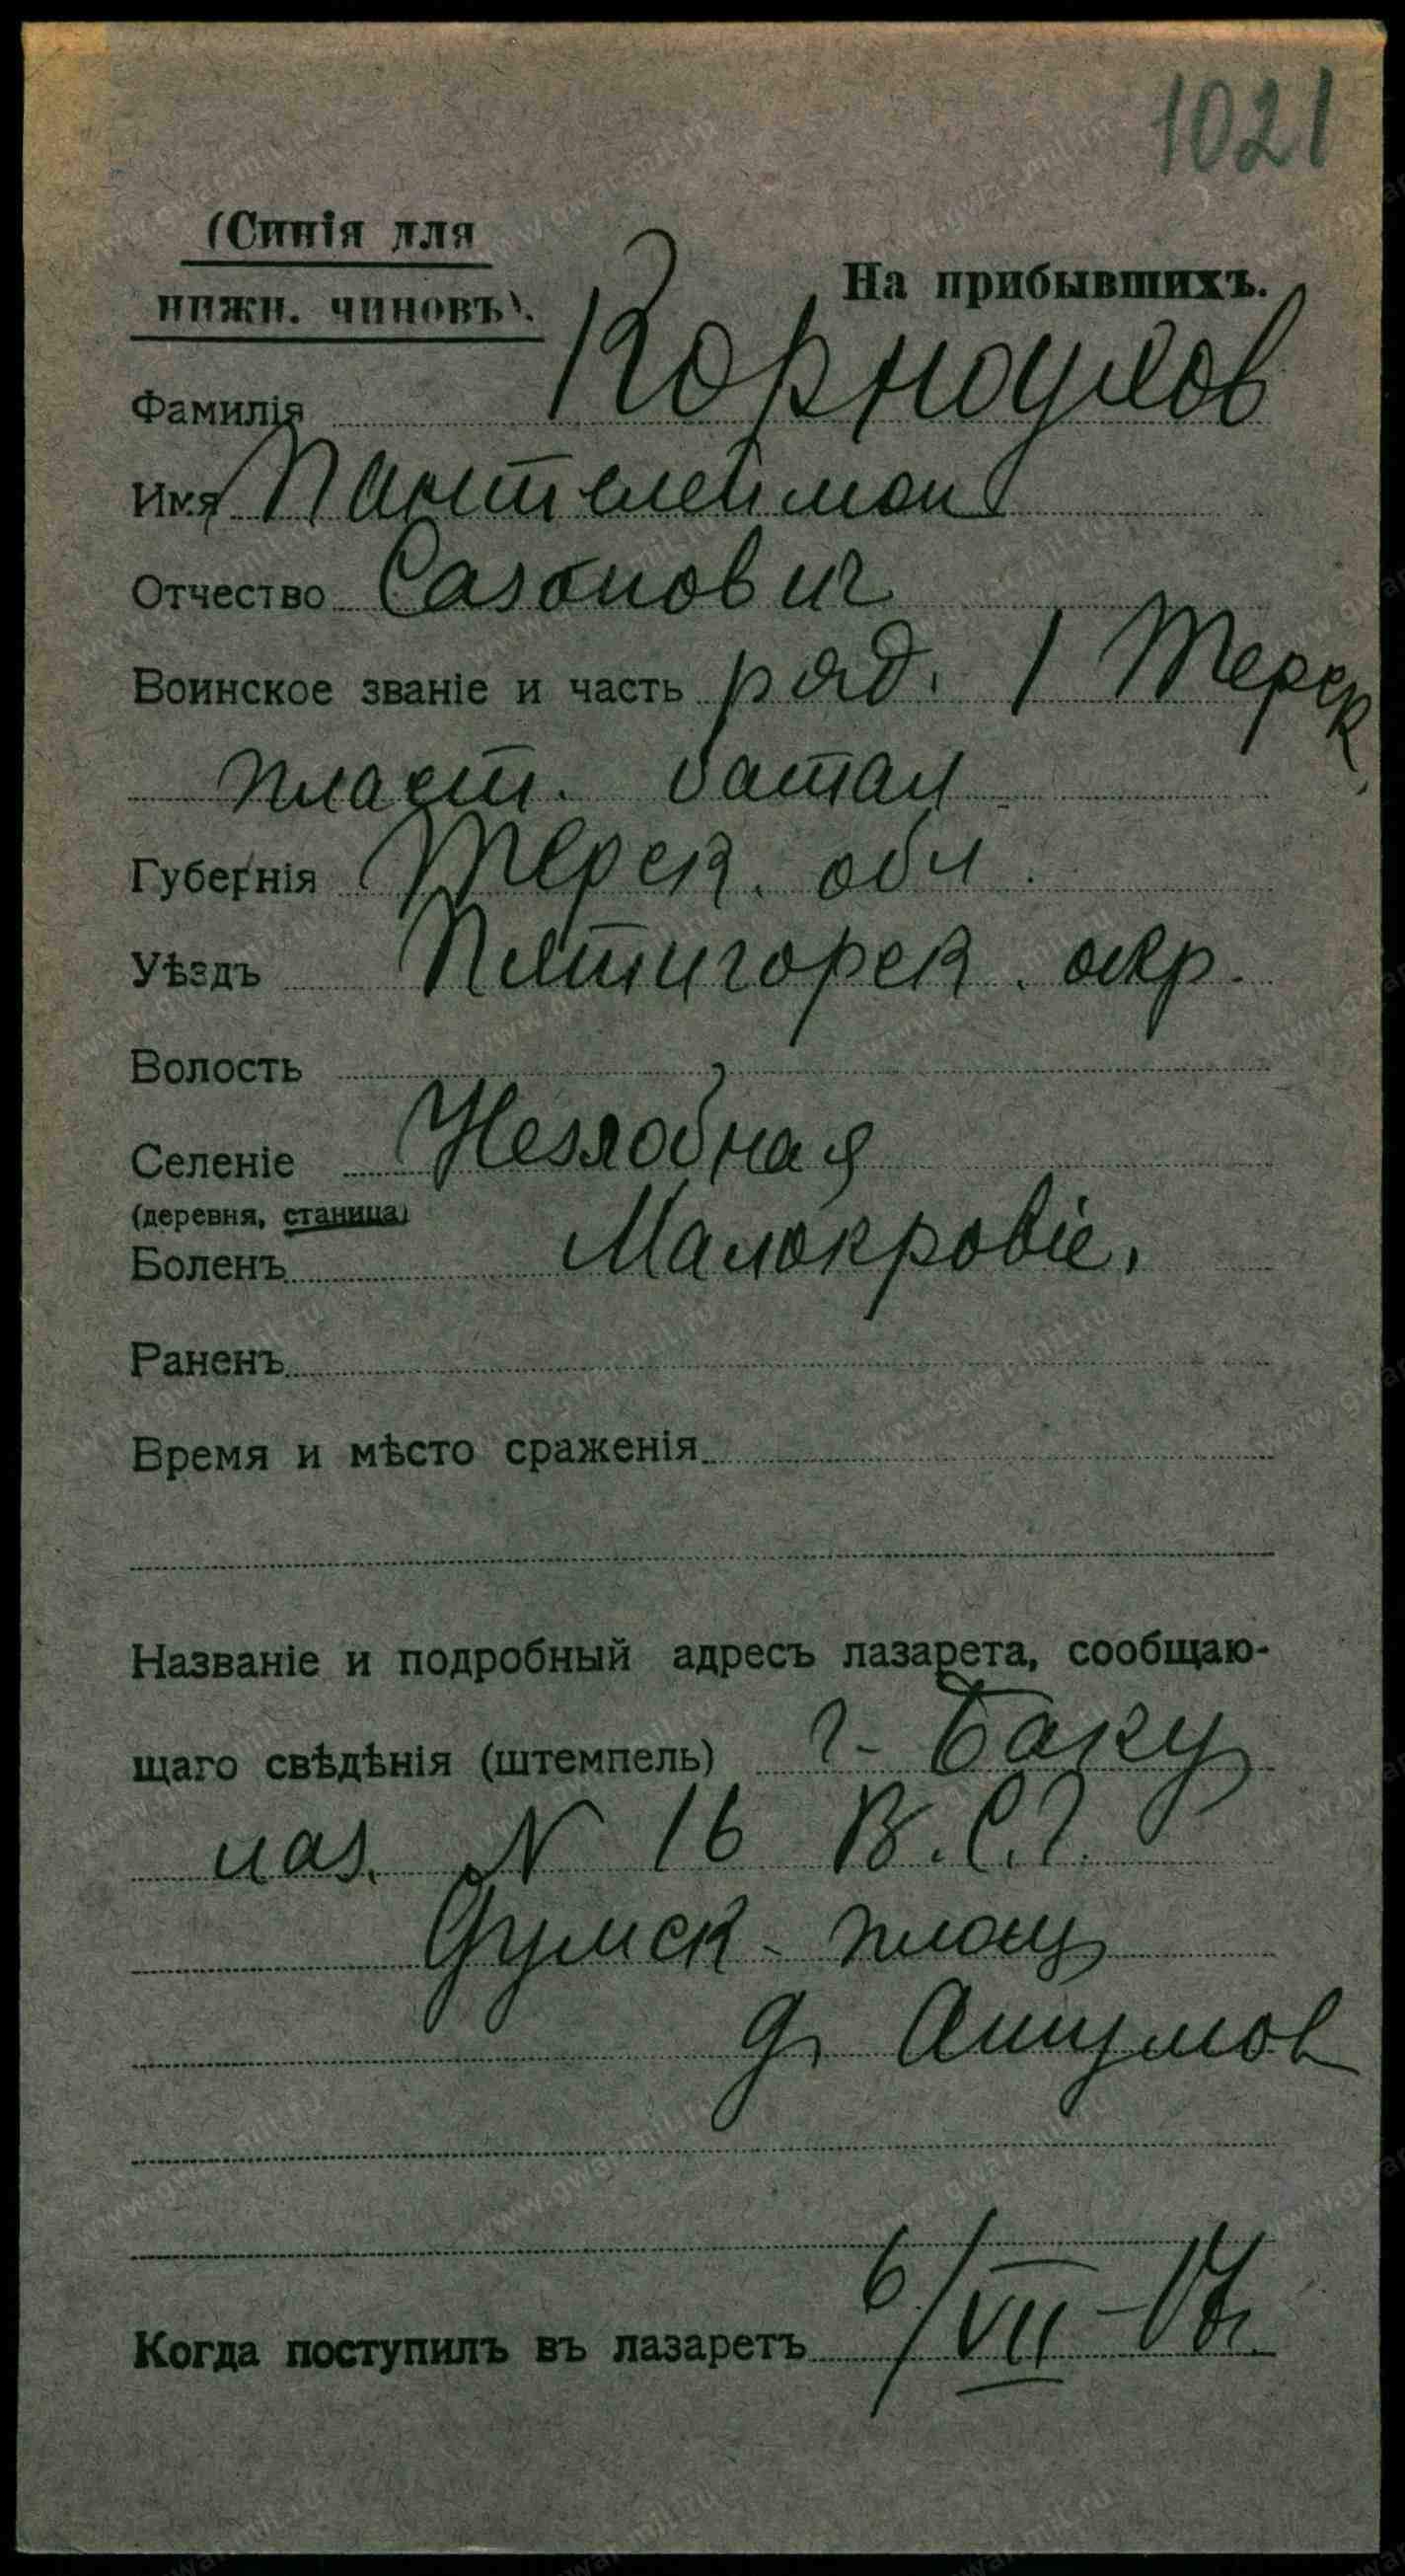 1021
(Синія для
нижн. чиновъ).
На прибывшихъ.
Фамилія Корноухов
Имя Пантелеймон
Отчество Сазонович
Воинское званіе и часть ряд. 1 Терск.
пласт. батал
Губернія Терск. обл.
Уѣздъ Пятигорск. окр.
Волость
Селеніе Незлобная
(деревня, станица)
Боленъ Малокровіе.
Раненъ
Время и мѣсто сраженія
Названіе и подробный адресъ лазарета, сообщаю-
щаго свѣдѣнія (штемпель) г. Баку
лаз. N 16 В.С.Г.
Думск. площ
д. Ашумов
Когда поступилъ въ лазаретъ 6/VII-17г.